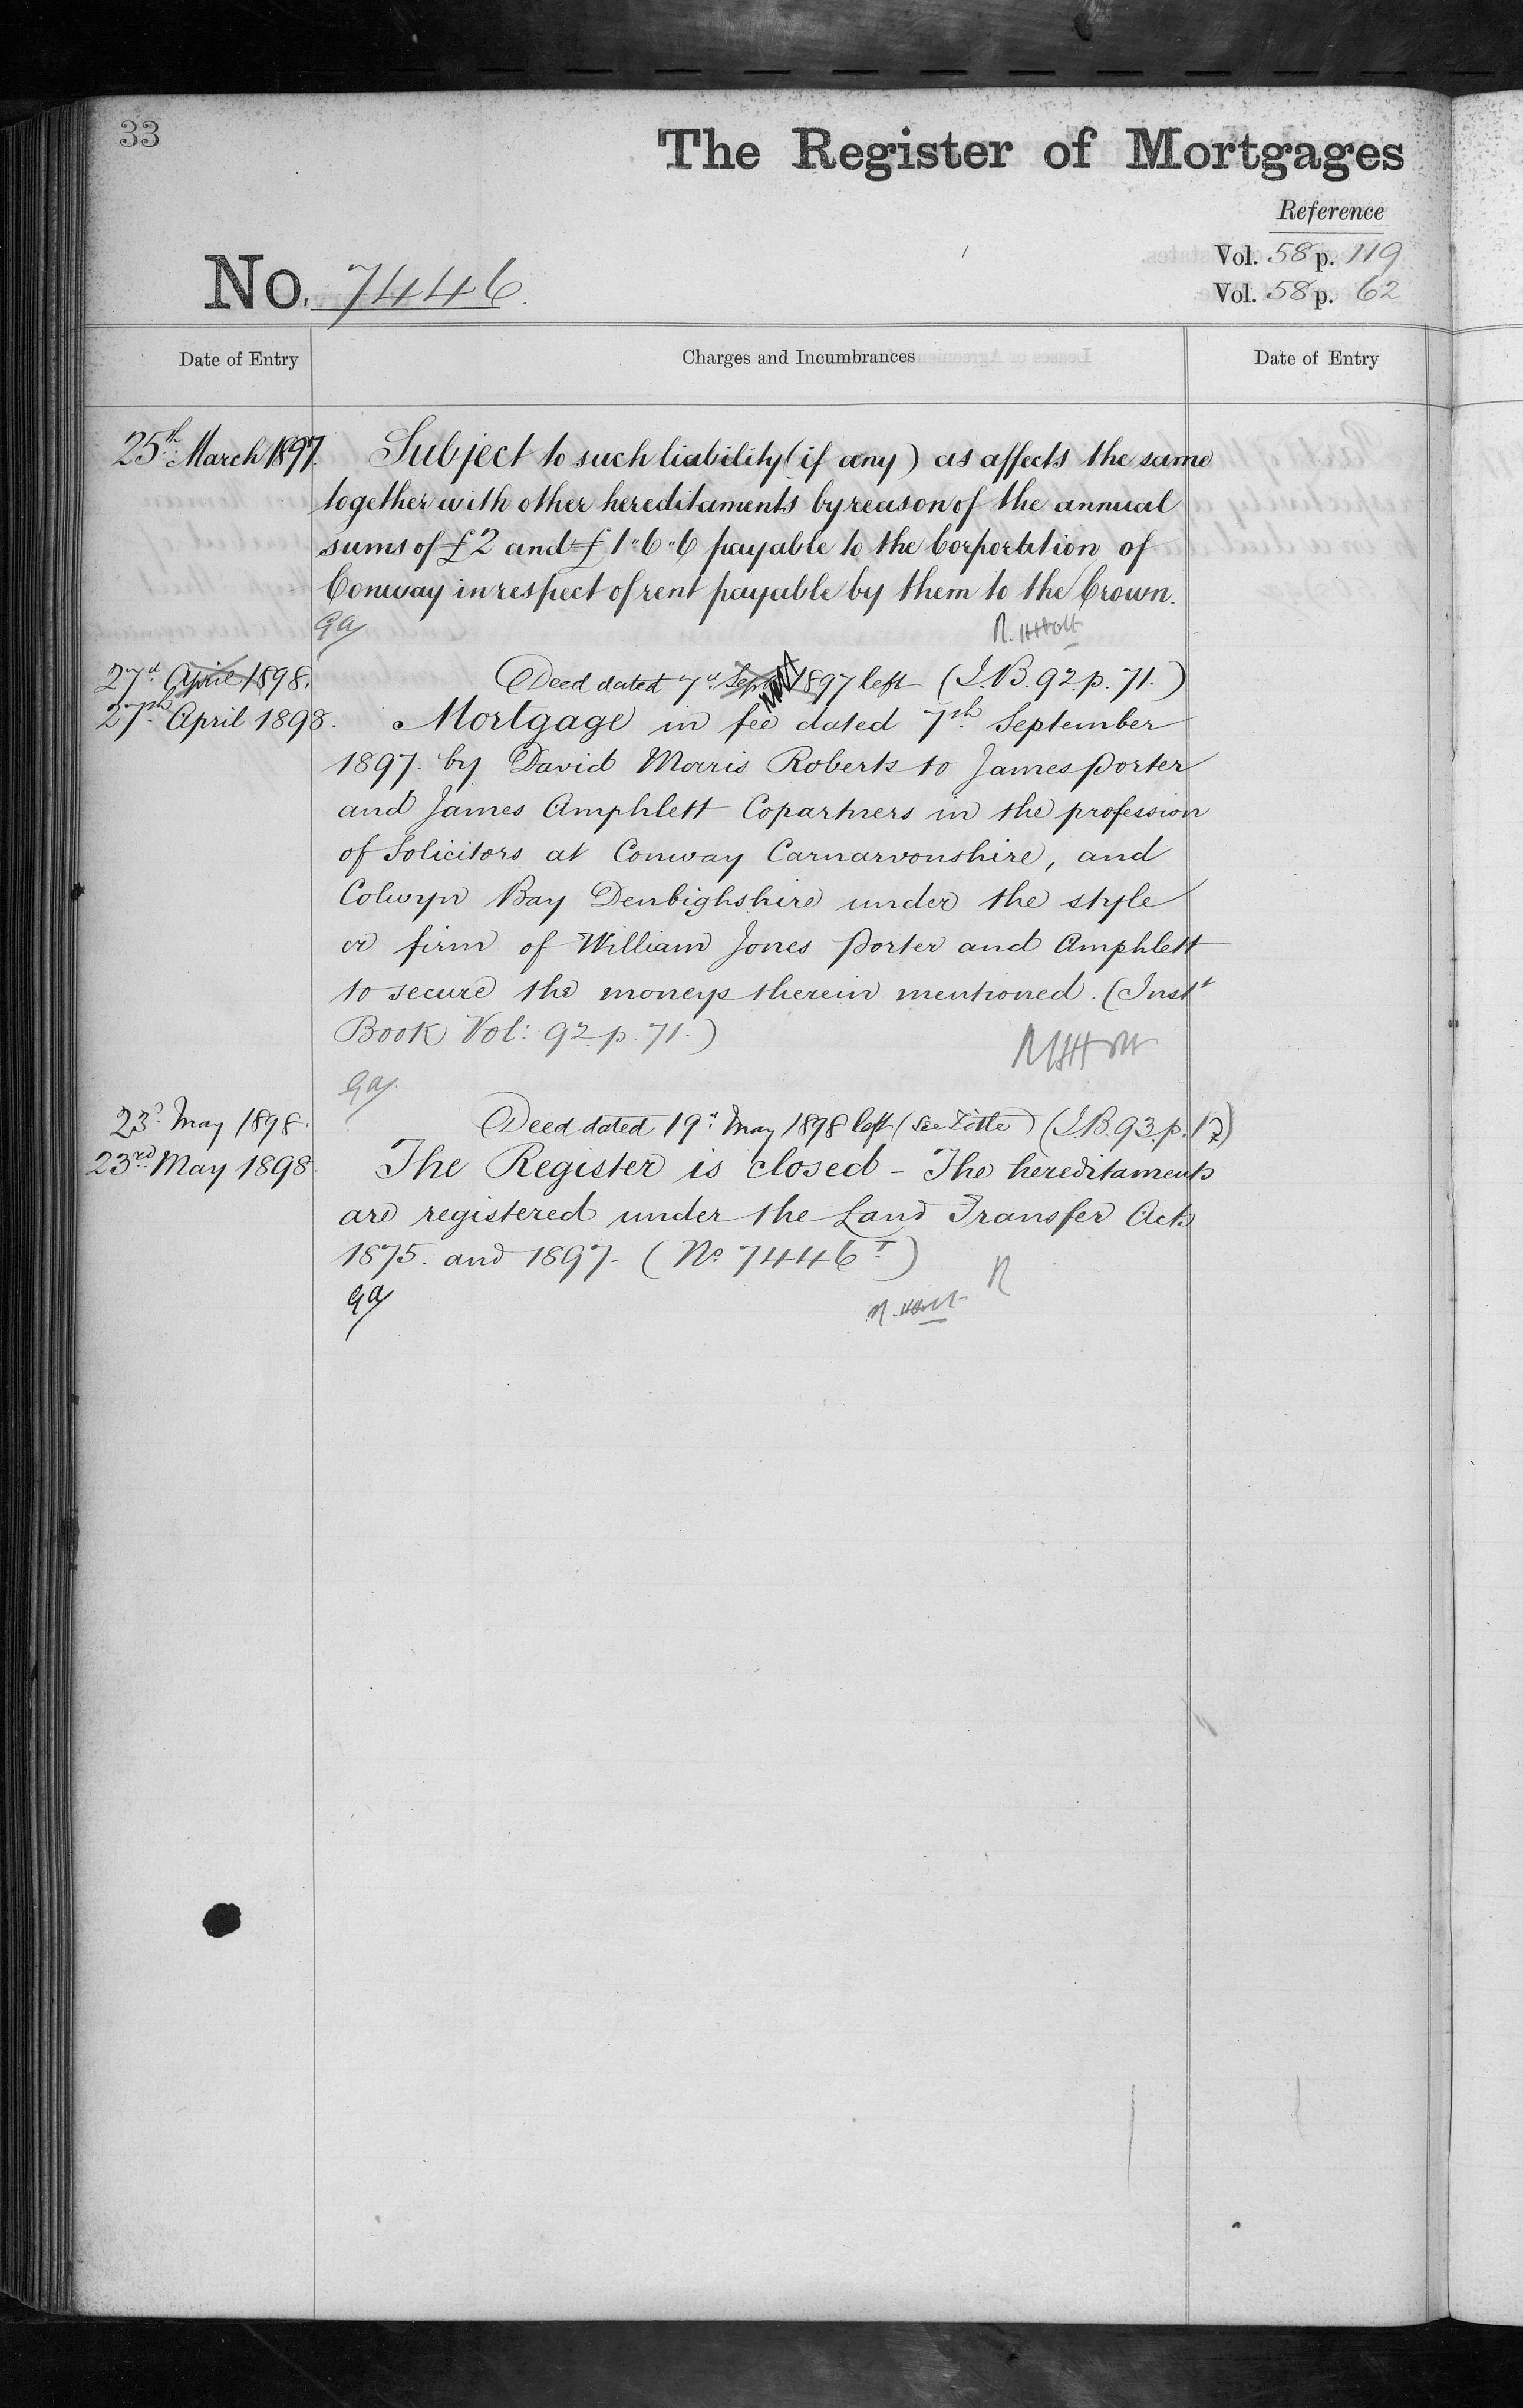 33
The Register of Mortgages
Reference
Vol. 58 p. 119
Vol. 58 p. 62
No. 7446.
Date of Entry
Charges and Incumbrances
Date of Entry
25th March 1897. Subject to such liability (if any) as affects the same
together with other hereditaments by reason of the annual
sums of £2 and £1"6"6 payable to the Corportation of
Conway in respect of rent payable by them to the Crown.
27d April 1898. Deed dated 7d Sept 1897 left (I.B. 92. p. 71.)
27th April 1898. Mortgage in fee dated 7th September
1897. by David Morris Roberts to James Porter
and James Amphlett Copartners in the profession
of Solicitors at Conway Carnarvonshire, and
Colwyn Bay Denbighshire under the style
or firm of William Jones Porter and Amphlett
to secure the moneys therein mentioned. (Instt
Book Vol: 92. p. 71.)
23d May 1898. Deed dated 19d May 1898 left (See Title) (I.B. 93. p. 17)
23rd May 1898. The Register is closed – The hereditaments
are registered under the Land Transfer Acts
1875. and 1897. (No. 7446T)